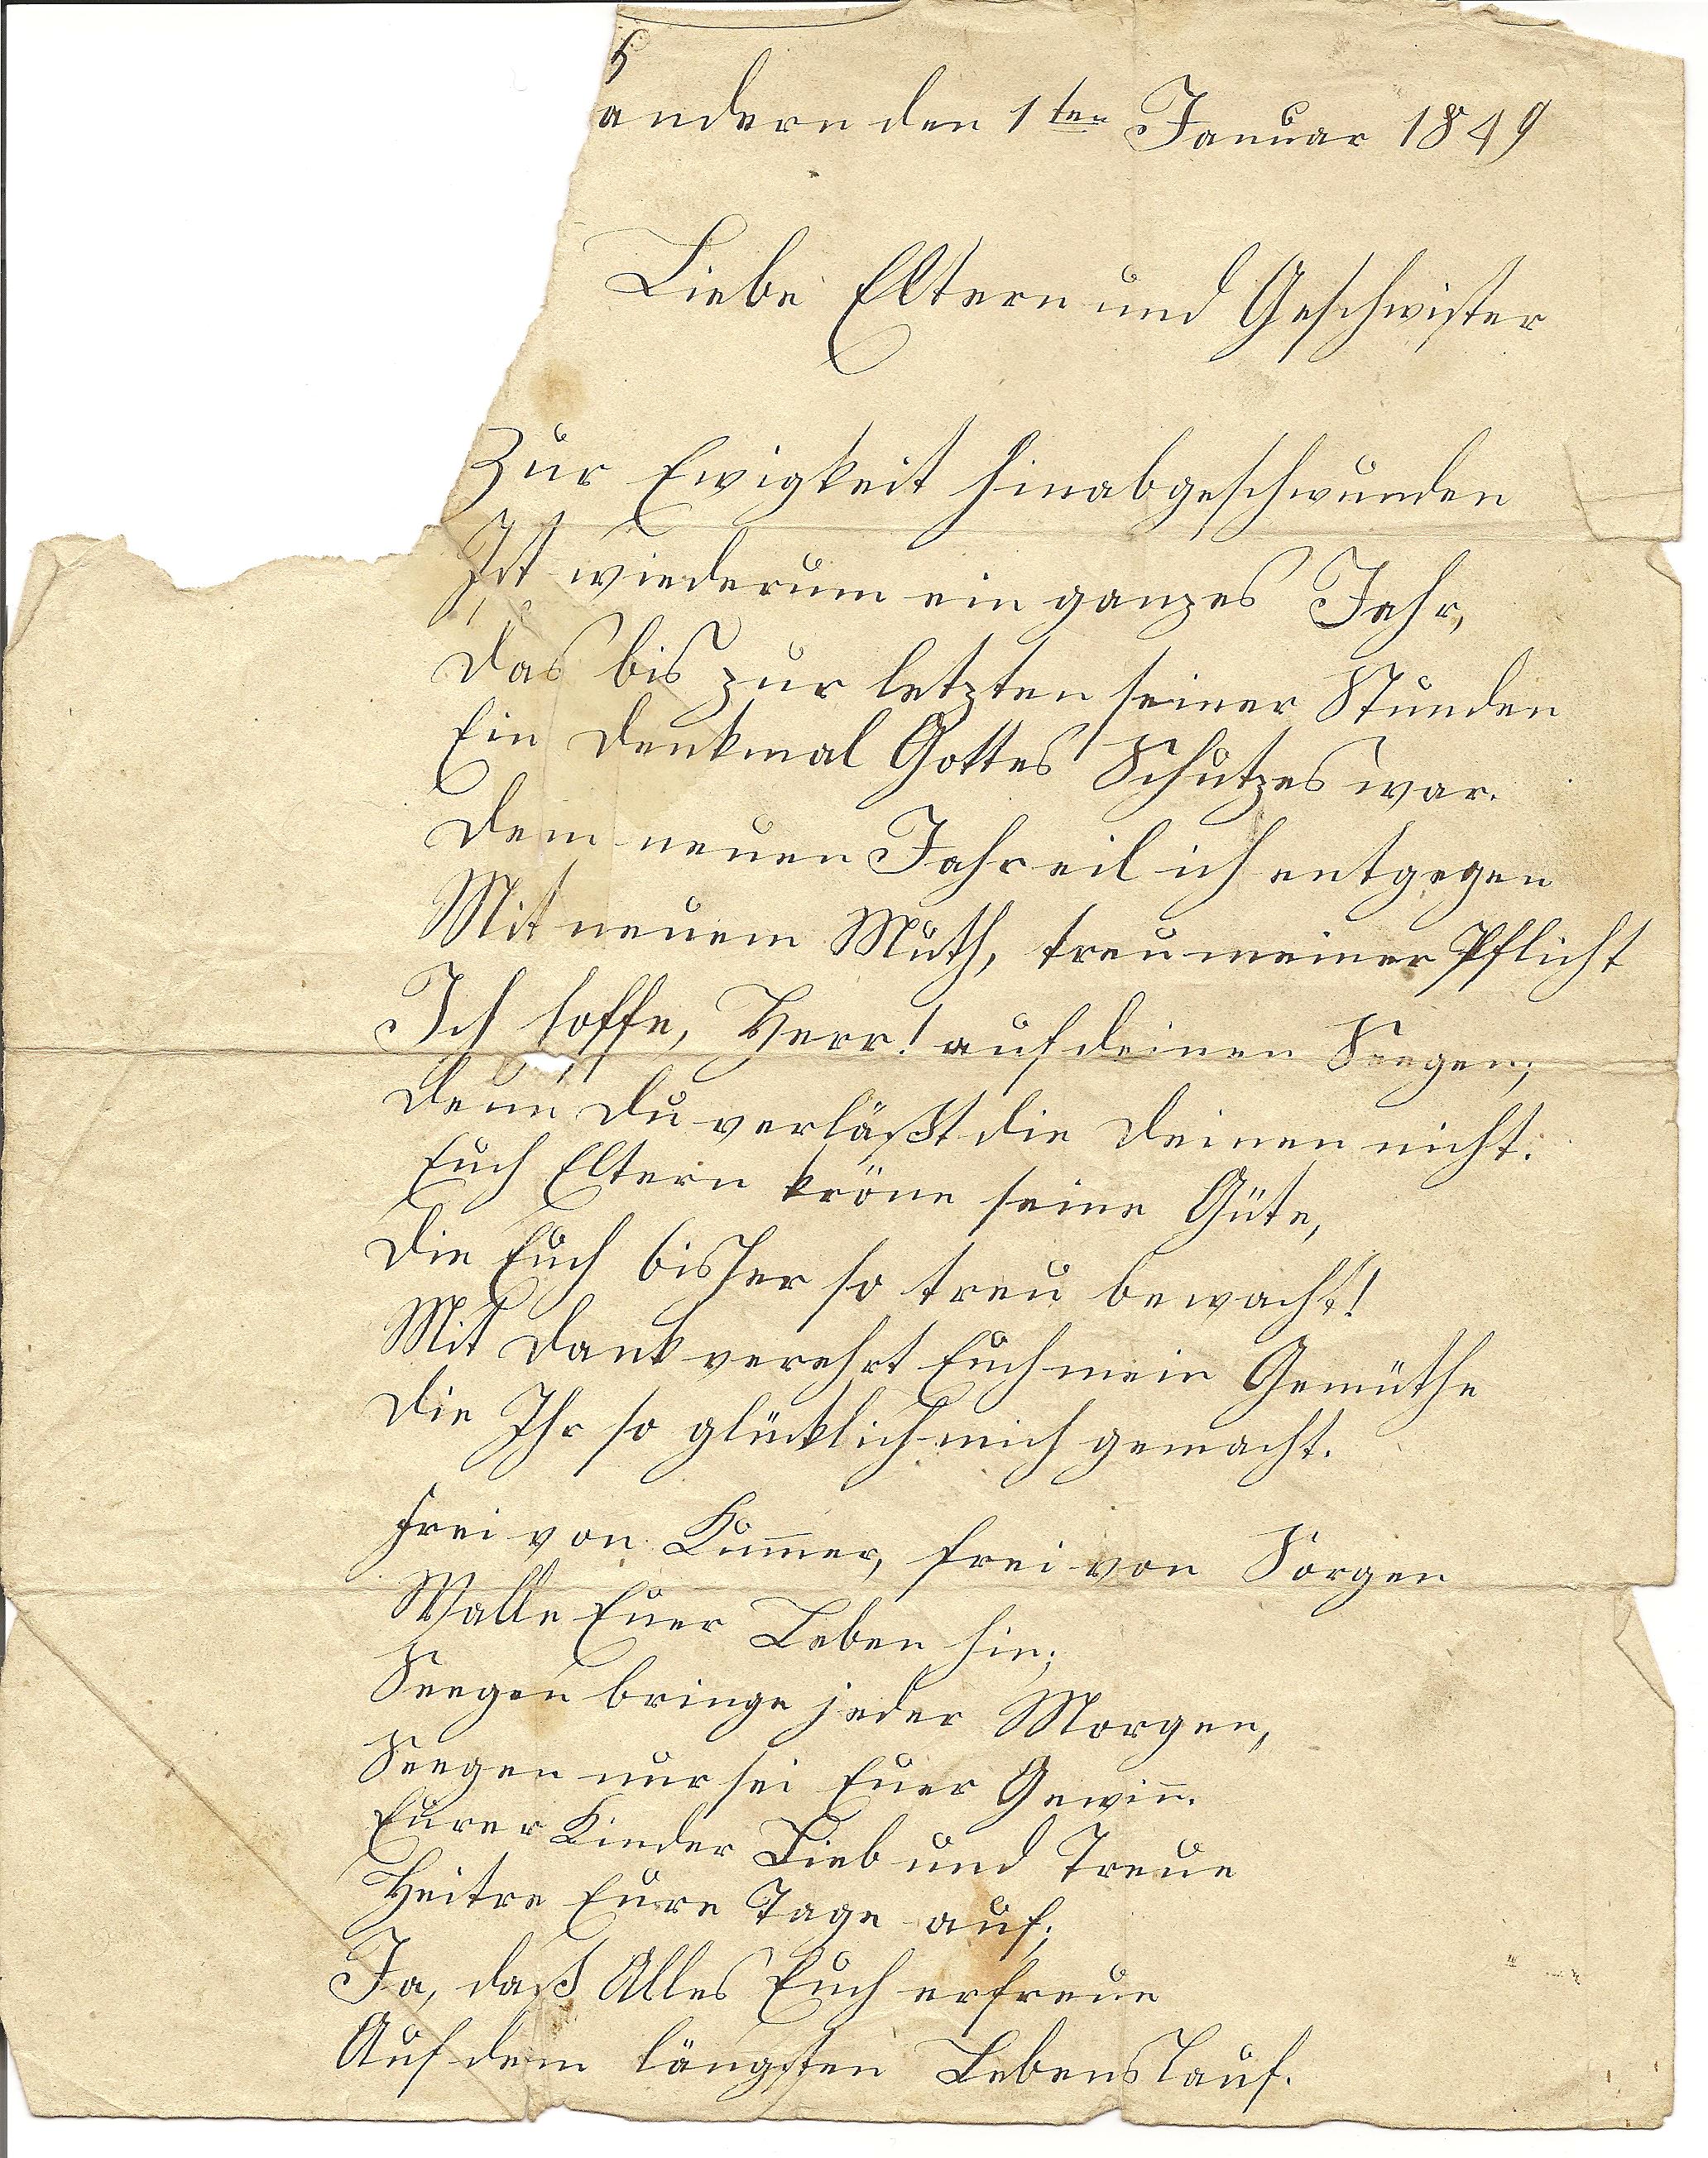 andern den 1ten Januar 1849
Liebe Eltern und Geschwister
Zur Ewigkeit hinabgeschwunden
Ist wiederum ein ganzes Jahr,
Das bis zur letzten seiner Stunden
Ein Denkmal Gottes Schutzes war.
Dem neuen Jahr eil ich entgegen
Mit neuem Muth, treu meiner Pflicht
Ich hoffe, Herr! auf deinen Seegen;
Denn Du verläßt die Deinen nicht.
Euch Eltern kröne seine Güte,
Die Euch bisher so treu bewacht!
Mit Dank verehrt Euch mein Gemüthe
Die Ihr so glücklich mich gemacht.
Frei von Kum̄er, frei von Sorgen
Walle Euer Leben hin;
Seegen bringe jeder Morgen,
Seegen nur sei Euer Gewin̄.
Eurer Kinder Lieb und Treue
Heitre Eure Tage auf;
Ja, daß Alles Euch erfreue
Auf dem längsten Lebenslauf.